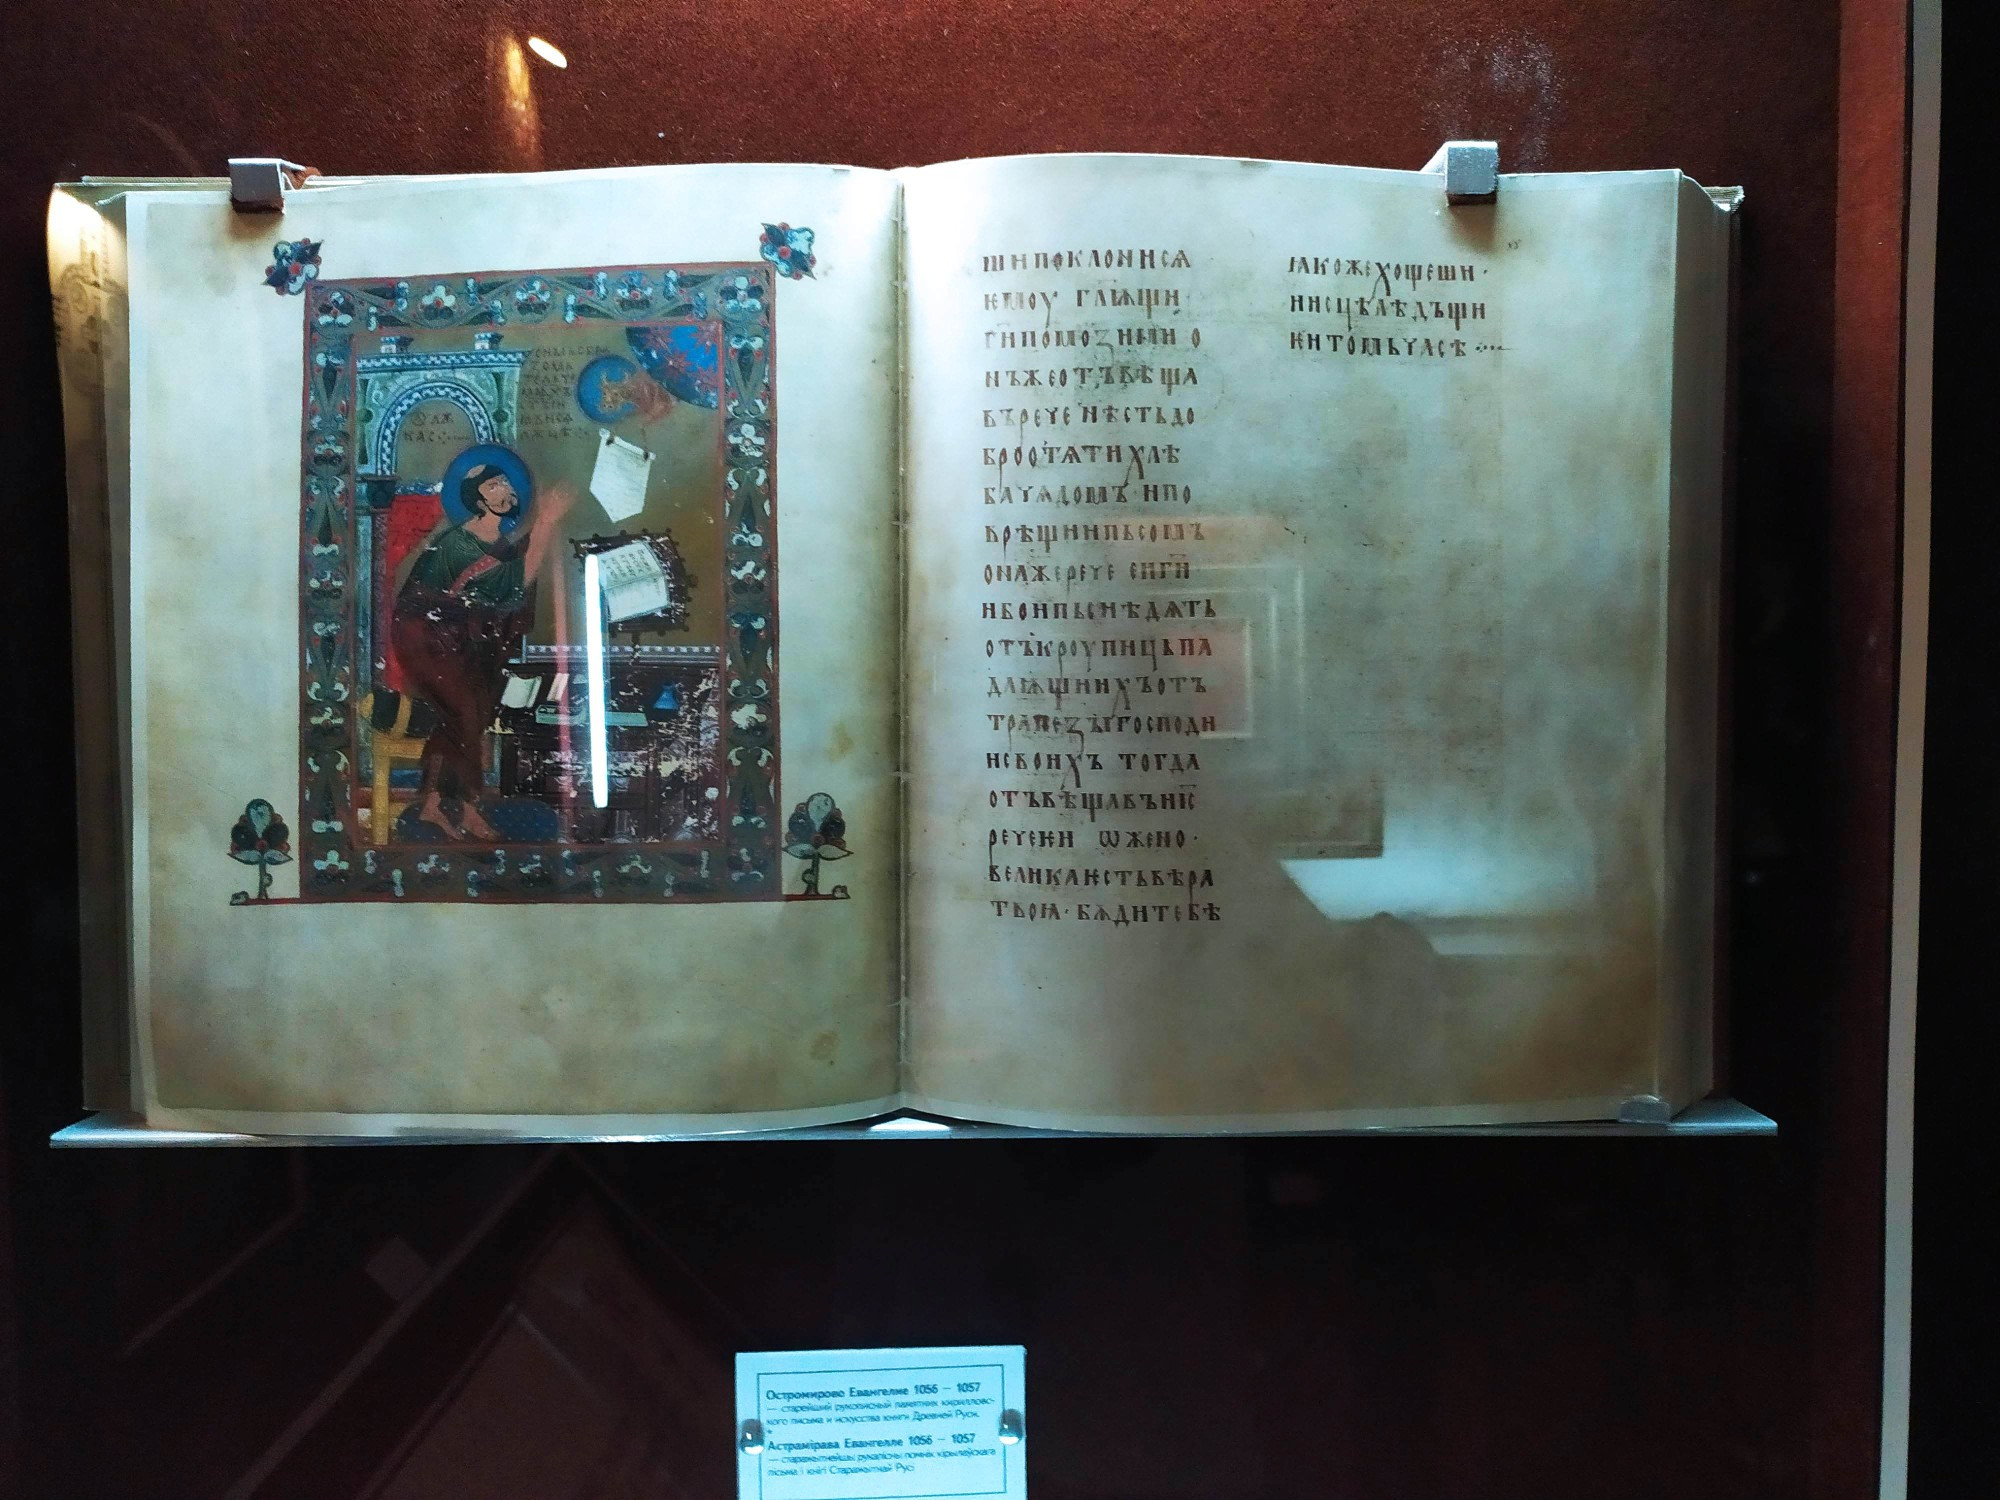 шипоклонисѧ
ѥмоу гл҃ѭщи
ги҃помозими о
нъжеотъвѣща
върече нѣстьдо
бро отѧти хлѣ
ба чѧдомъ · ипо
врѣщи ипьсомъ
онажерече ѥи ги҃
ибо ипьси ѣдѧть
отъкроупицьпа
даѭщиихъотъ
трапезыгосподи
исвоихъ тогда
отъвѣщавъ ис҃
речеѥи ѡ жено ·
великаѥстьвѣра
твоꙗ · бѫди тебѣ
ꙗкожехощеши ·
иисцѣлѣдъщи
ѥи томь часѣ
Остромирово Евангелие 1056 – 1057
— старейший рукописный памятник кирилловс-
кого письма и искусства книги Древней Руси.
Астрамірава Евангелле 1056 – 1057
— старажытнейшы рукапісны помнік кірылаўскага
пісьма і кнігі Старажытнай Русі